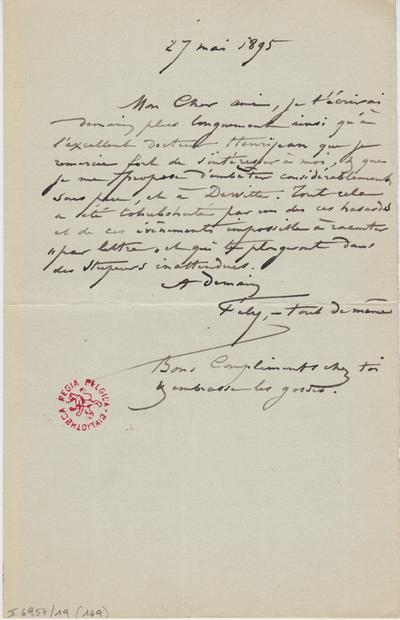 27 mai 1895
Mon Cher ami, je t'écrirai
demain plus longuement ainsi qu'à
l'excellent docteur Henrijean que je
remercie fort de s'intéresser à moi, & que
je me propose d'embêter considérablement
sous peu, et à Dewitte. Tout cela
a été tohubohuté par un des ces hasards
et de ces évènements impossible à raconter
"par lettre, et qui te plongeront dans
des stupeurs inattendues.
A Demain
Fély, – tout de même
Bons Compliments chez toi
& embrasse les gosses.
BIBLIOTHECA REGIA BELGICA
II 6957/19 (169)